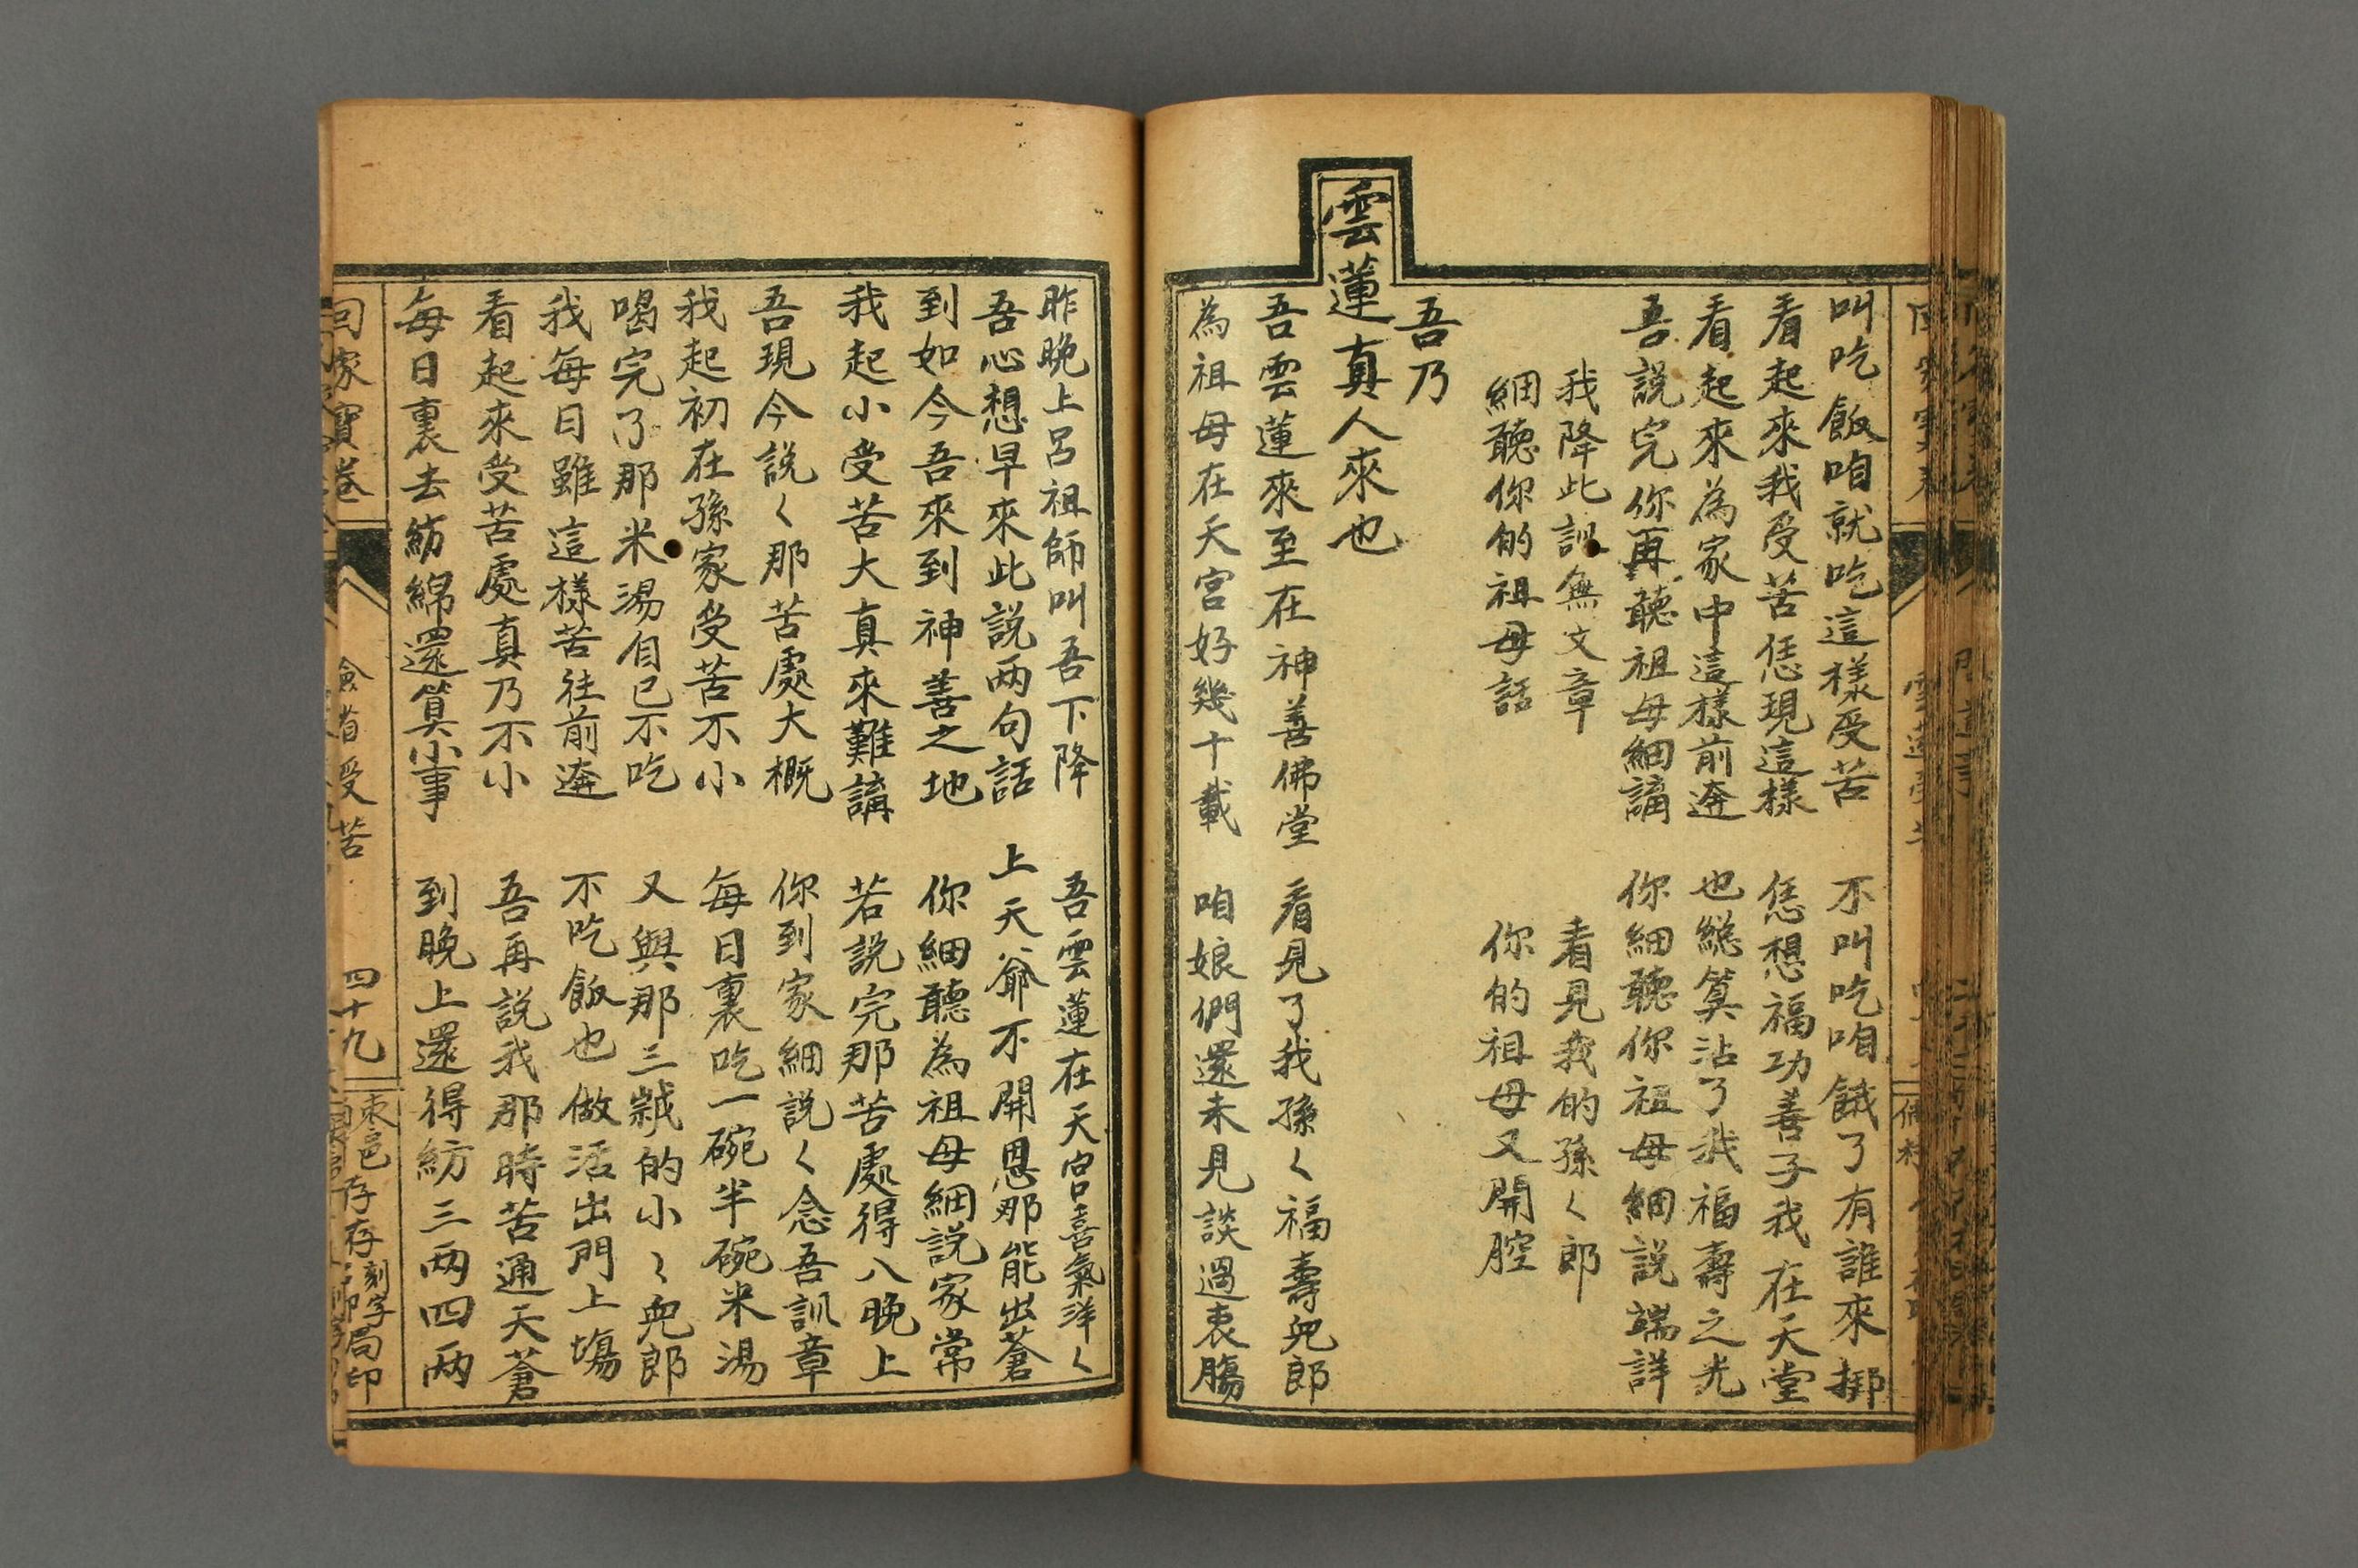 叫吃飯咱就吃這樣受苦　不叫吃咱餓了有誰來挷
看起來我受苦恁現這樣　恁想福功善子我在天堂
看起來為家中這樣前逩　也總算沾了我福壽之光
吾說完你再聽祖母細講　你細聽你祖母細說端詳
我降此訓無文章　看見我的孫〱郎
細聽你的祖母話　你的祖母又開腔
吾乃
雲蓮真人來也
吾雲蓮來至在神善佛堂　看見了我孫〱福壽兒郎
為祖母在天宮好幾十載　咱娘們還未見談過衷腸
昨晚上呂祖師叫吾下降　吾雲蓮在天宮喜氣洋〱
吾心想早來此說兩句話　上天爺不開恩那能出蒼
到如今吾來到神善之地　你細聽為祖母細説家常
我起小受苦大真來難講　若說完那苦處得八晚上
吾現今説〱那苦處大概　你到家細説〱念吾訓章
我起初在孫家受苦不小　每日裏吃一碗半碗米湯
喝完了那米湯自己不吃　又與那三歲的小〱兒郎
我每日雖這樣苦往前逩　不吃飯也做活出門上塲
看起來受苦處真乃不小　吾再説我那時苦通天蒼
每日裏去紡綿還算小事　到晚上還得紡三兩四兩
回家寶卷
受苦
四十九
棗邑存存刻字石印局印